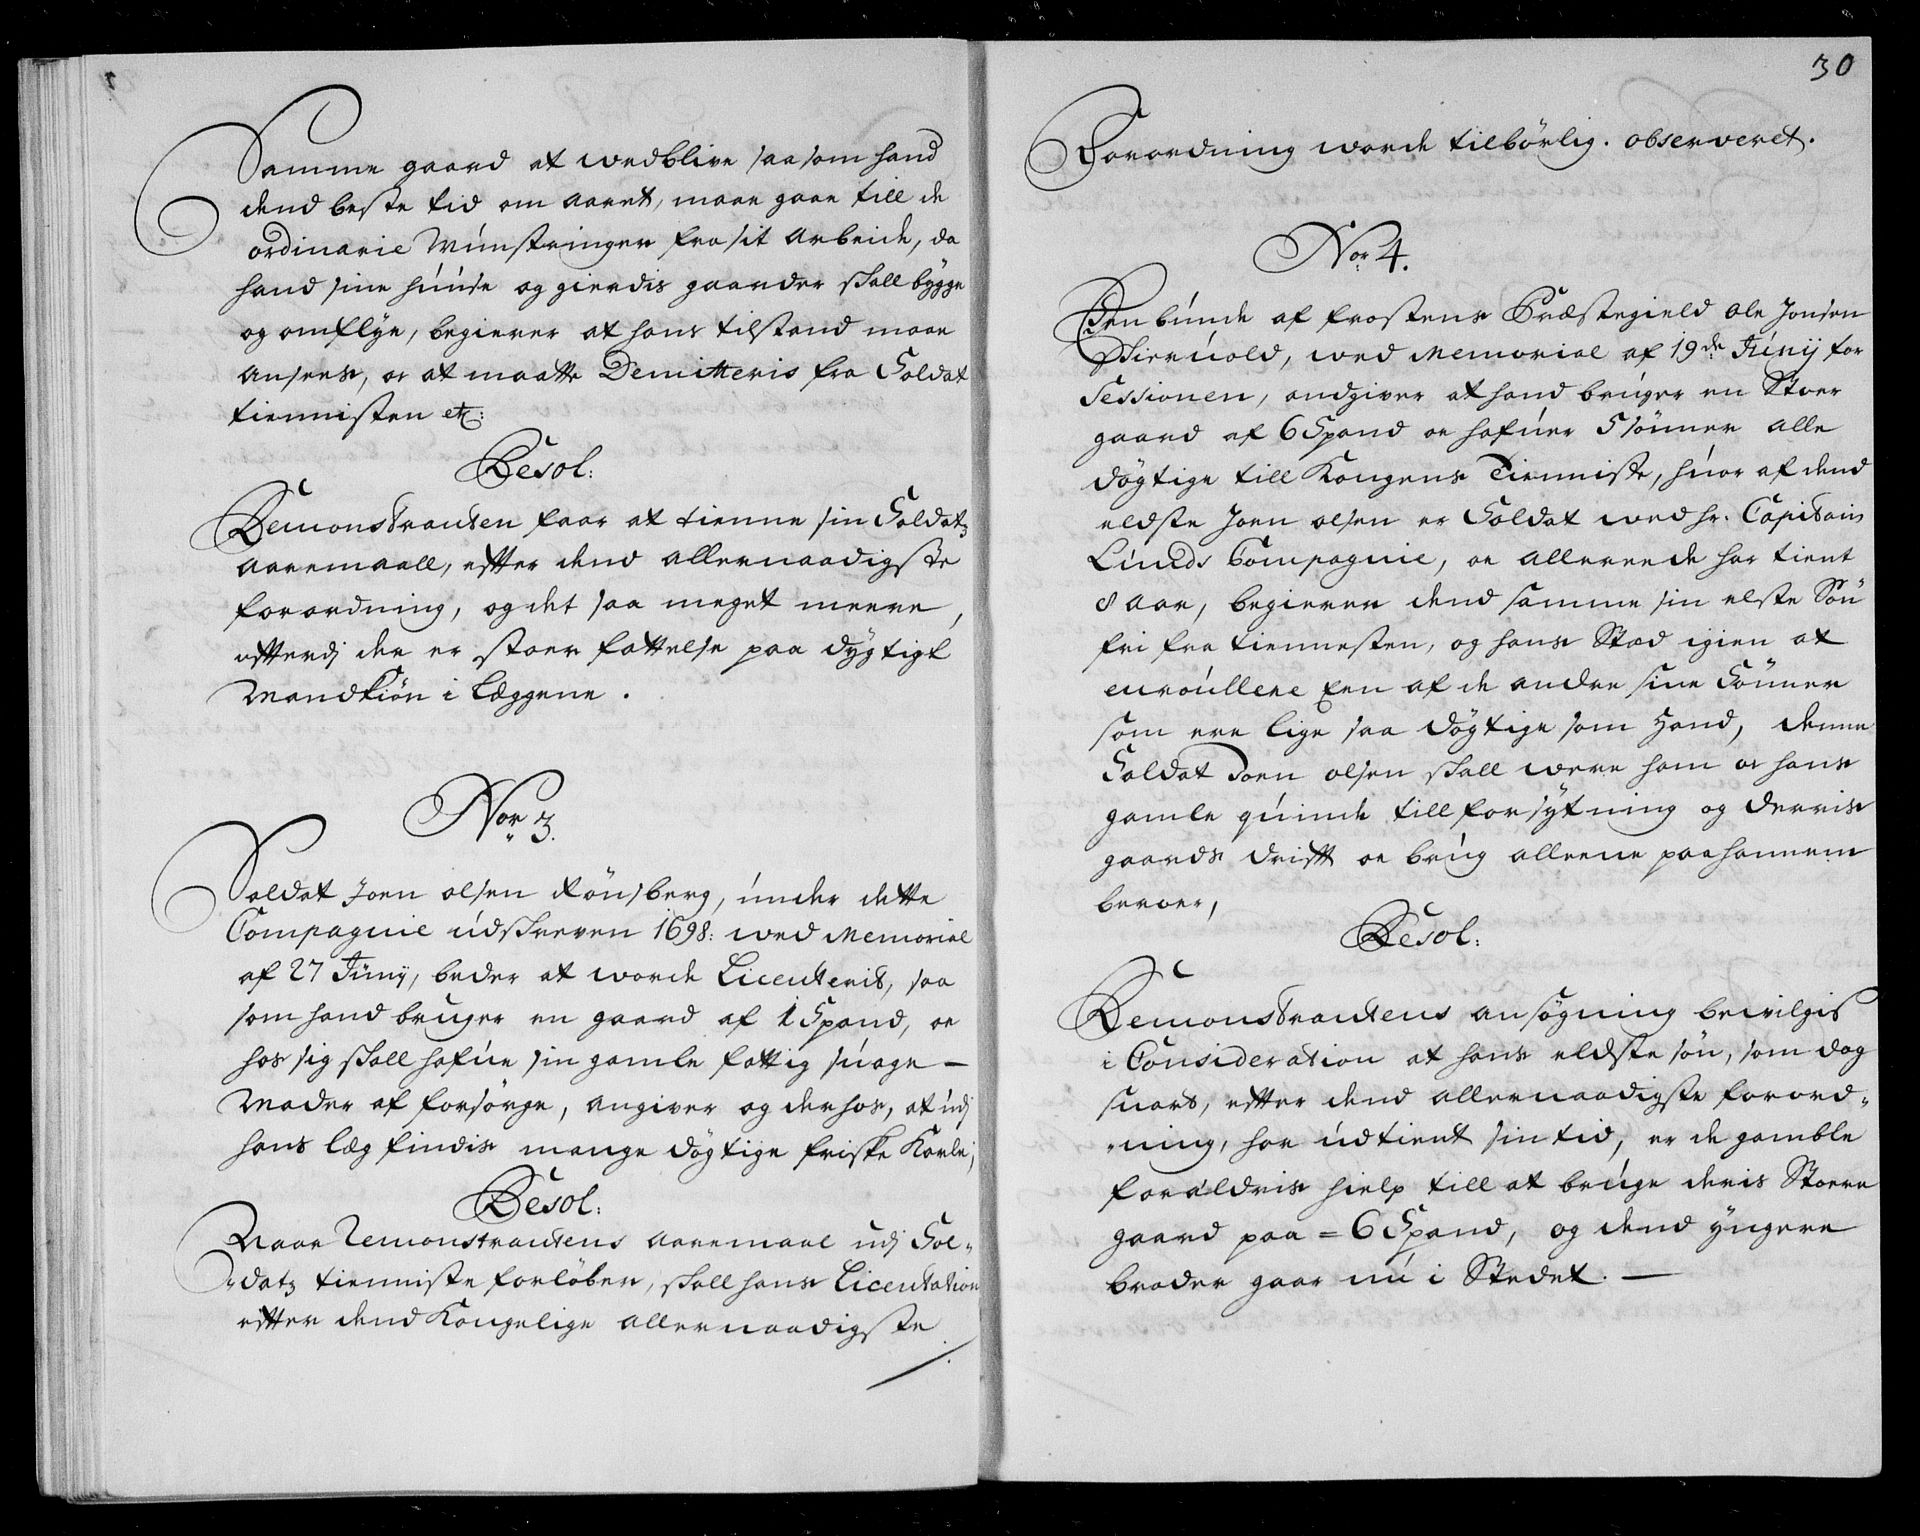 Samme gaard at wedblive saasom hand
dend beste tid om aaret, maae gaae till de
ordinarie Mùnstringer fra sit Arbeide, da
hand sine hùùse og gierdis gaarder skall bygge
og omflye, begierer at hans tilstand maae
ansees, oc at maatte Demitteris fra Soldat
tiennisten etc:
Resol:
Remonstranten faar at tienne sin Soldatz
Aaremaall, effter dend allernaadigste
forordning, og det saa meget meere,
effterdj der er stoer fattelse paa dygtigt
Mandkiön i Læggene.
Nor 3.
Soldat Joen olsen Rönsberg, ùnder dette
Compagnie ùdskreven 1698: wed Memorial
af 27 Jùnij, beder at worde Licenterit, saa
som hand bruger en gaard af 1 Spand, oc
hos sig skall hafùe sin gamle fattig sùage -
Moder af forsörge, angiver og derhos, at ùdj
hans læg findis mange dögtige friske Karle,
Resol:
Naar Remonstrantens Aaremaal udj Sol-
-datz tienniste forlöber, skall hans Licentation
effter dend Kongelige allernaadigste
30
Forordning worde tilbörlig. observeret.
Nor 4.
Een bùnde af frostens Præstegield ole Jonsen
Skierùold, wed Memorial af 19de Jùnij for
Sessionen, andgiver at hand brùger en Stoer
gaard af 6 Spand oc hafùer 5 sönner alle
dögtige till Kongens Tienniste, hùor af dend
eldste Joen olsen er Soldat wed hr. Capitain
Lùnds Compagnie, oc allerede har tient
8 aar, begierer dend samme sin elste Sön
fri fra tiennesten, og hans Stad igien at
enroùllere Een af de andre sine Sönner
som ere lige saa dögtige som Hand, denne
Soldat Joen olsen skall were ham oc hans
gamle qùinde till forsÿtning og derris
gaards drifft oc brùg alleene paa hannem
beroer,
Resol:
Remonstrantens ansögning bevilgis
i Consideration at hans eldste sön, som dog
snart, effter dend allernaadigste forord-
-ning, har ùdtient sin tid, er de gamble
forældris hielp till at brùge deris Stoere
gaard paa = 6 Spand, og dend ÿngere
broder gaar nù i Stedet. -